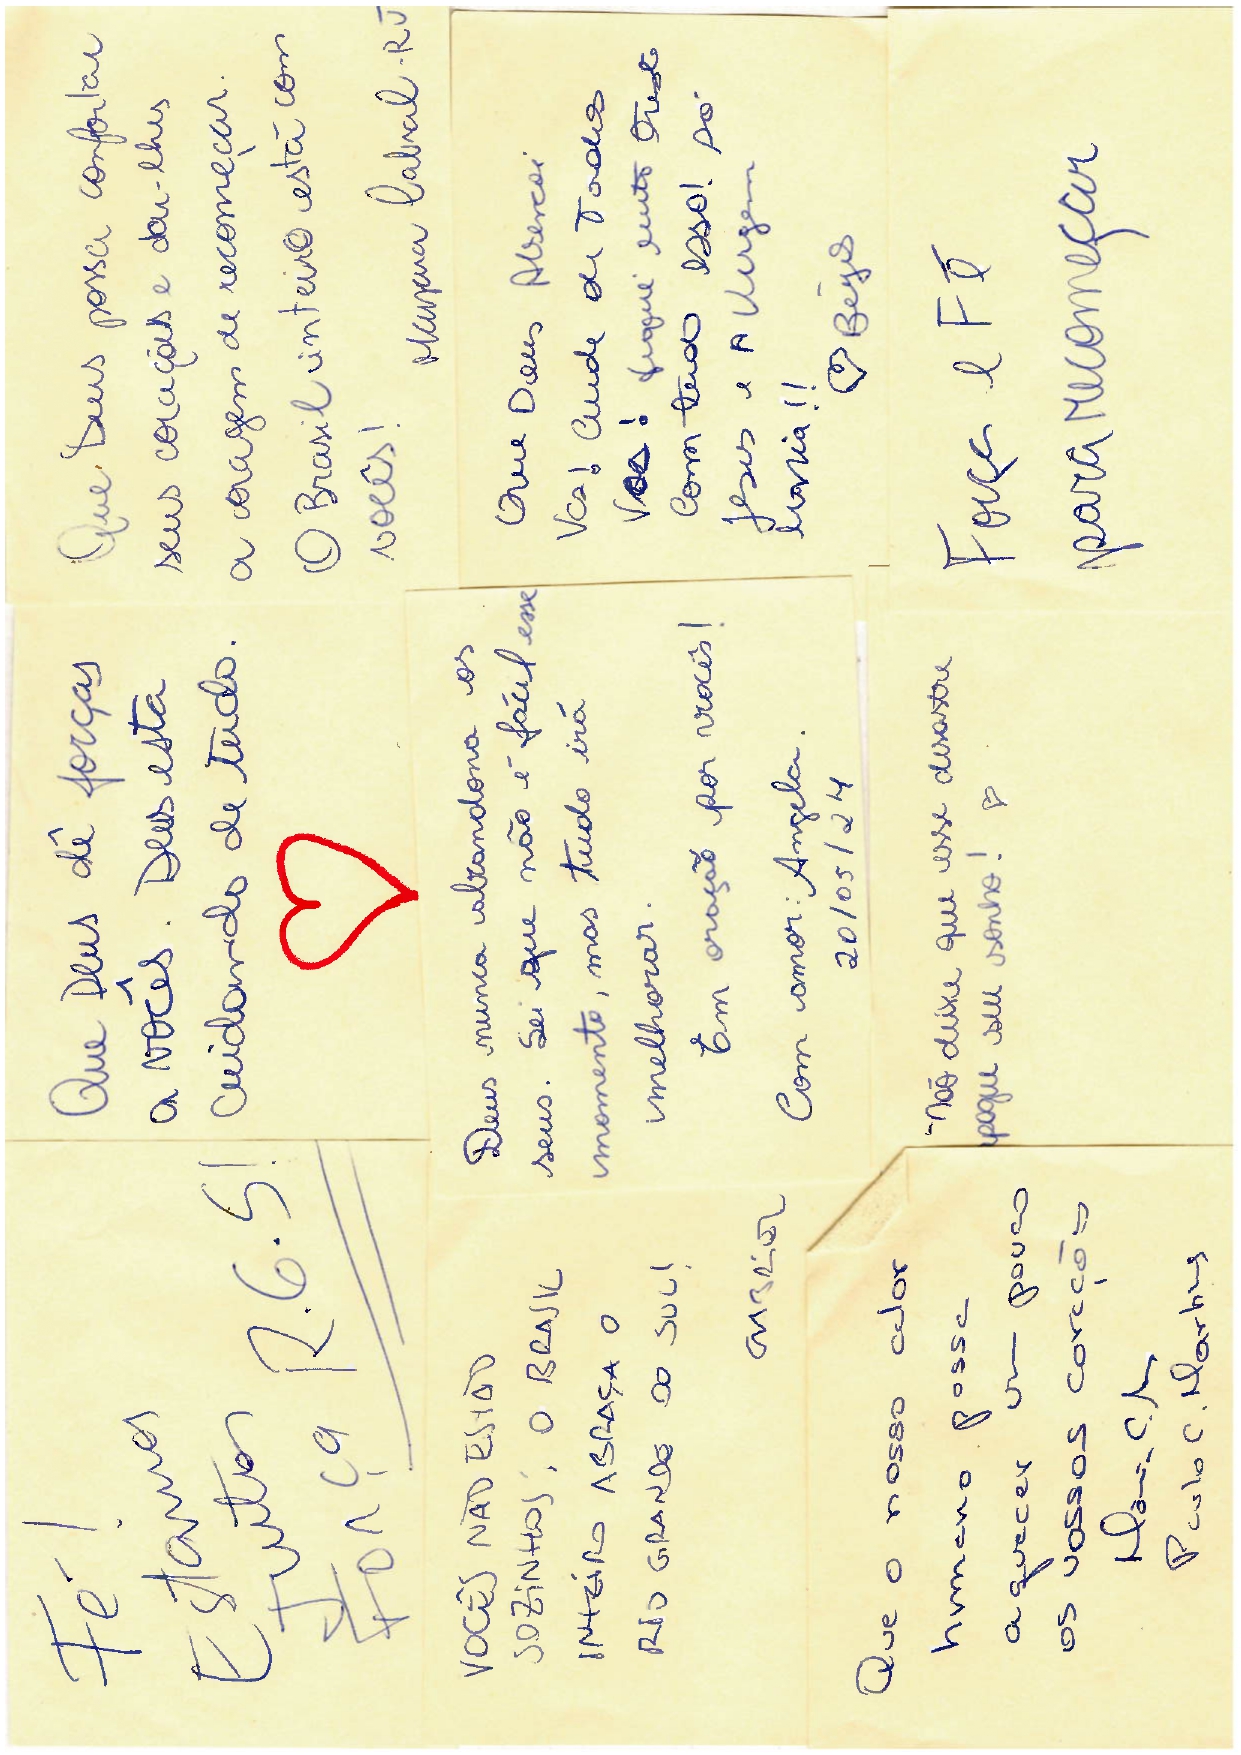 Fé!
Estamos
Juntos
R.G.S!
Força
Que Deus dê forças
a vocês. Deus está
cuidando de tudo.
Que Deus possa confortar
seus corações e dar-lhes
a coragem de recomeçar.
O Brasil inteiro está com
vocês!
Cabral - RJ
VOCÊS NÃO ESTÃO
SOZINHOS, O BRASIL
INTEIRO ABRAÇA O
RIO GRANDE DO SUL!
GABRIEL
Deus nunca abandona os
seus. Sei que não é fácil esse
momento, mas tudo irá
melhorar.
Em oração por vocês!
Com amor: Angela.
20/05/24
Que Deus
Vcs! Cuide de Todos
Vcs! fiquei muito triste
com tudo isso! Só
Jesus e A Virgem
Maria!!
Que o nosso calor
humano possa
aquecer um pouco
os vossos corações
Paulo C. Martins
"Não deixe que esse desastre
apague seu sonho!
Força e Fé
para recomeçar